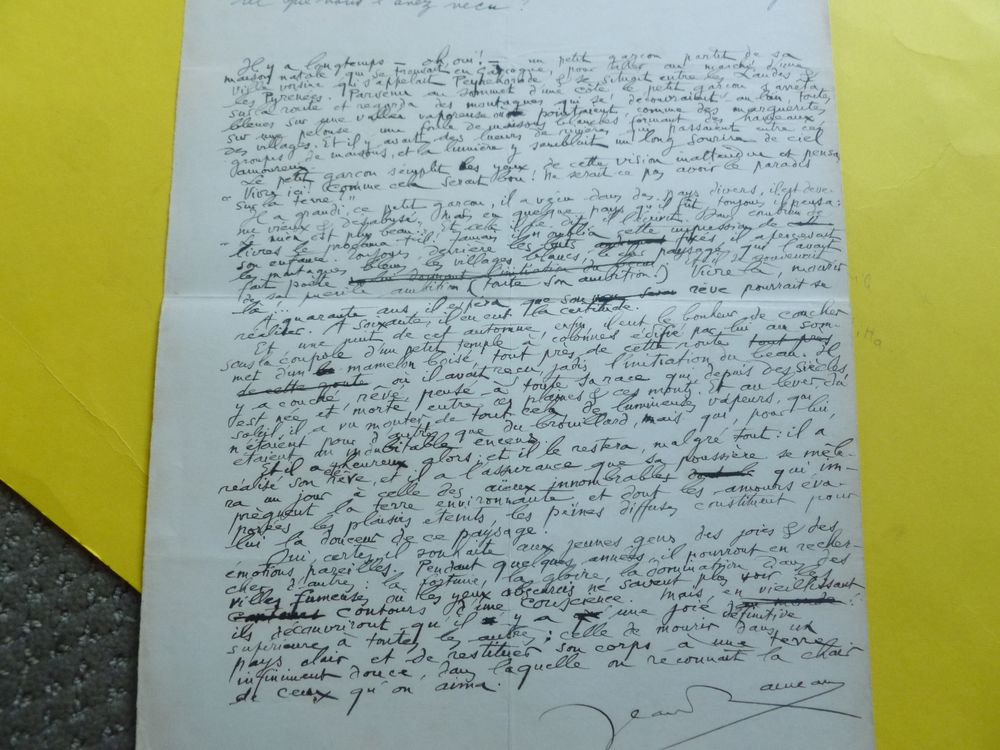 tel que nous l'avez reçu ?
Il y a longtemps — oh oui ! — un petit garçon partit de sa
maison natale, qui se trouvait en Gascogne, pour aller au marché d'une
ville voisine qui s'appelait Peyrehorade & se situait entre les Landes &
les Pyrénées. Parvenu au sommet d'une côte le petit garçon s'arrêta
sur la route et regarda des montagnes qui se découvraient au loin, toutes
bleues sur une vallée vaporeuse où pointaient comme des marguerites
sur une pelouse une foule de maisons blanches formant des hameaux,
des villages. Et il y avait des lueurs de rivières qui passaient entre ces
groupes de maisons, et la lumière y semblait un long sourire de ciel
amoureux.
Le petit garçon s'emplit les yeux de cette vision inattendue et pensa
" Vivre ici ! Comme cela serait bon ! Ne serait ce pas avoir le paradis
sur la terre ? "
Il a grandi, ce petit garçon, il a vécu dans des pays divers, il est deve-
nu vieux & désabusé. Mais en quelque pays qu'il fût toujours il pensa :
" Le mien est plus beau. " Et cela il le dit, il l'écrivit. Dans combien de
livres le proclama-t-il. Jamais il n'oublia cette impression de
son enfance. Toujours, derrière les buts fixés il apercevait
les montagnes bleues, les villages blancs, le paysage qui l'avait
fait poète en lui donnant l'initiation du beau
de sa puérile ambition (toute son ambition !) Vivre là, mourir
là.
A quarante ans il espéra que son rêve pourrait se
réaliser. A soixante, il en eut la certitude.
Et une nuit de cet automne, enfin, il eut le bonheur de coucher
sous la coupole d'un petit temple à colonnes édifié par lui au som-
met d'un mamelon boisé tout près de cette route tout près
de cette route où il avait reçu, jadis, l'initiation du beau. Il
y a couché, rêvé, pensé à toute sa race qui, depuis des siècles,
est née et morte entre ces plaines & ces monts. Et au lever du
soleil, il a vu monter de tout cela de lumineuses vapeurs, qui
n'étaient pour d'autres que du brouillard, mais qui, pour lui,
étaient un indubitable encens.
Et il a été heureux alors ; et il le restera, malgré tout : il a
réalisé son rêve, et il a l'assurance que sa poussière se mêle-
ra un jour à celle des aïeux innombrables qui im-
prègnent la terre environnante, et dont les amours éva-
porées, les plaisirs éteints, les peines diffuses constituent pour
lui la douceur de ce paysage.
Oui, certes, il souhaite aux jeunes gens des joies & des
émotions pareilles. Pendant quelques années, il pourront en recher-
cher d'autres : la fortune, la gloire, la domination dans des
villes fumeuses où les yeux obscurcis ne savent plus voir les
contours d'une conscience. Mais, en vieillissant
ils découvriront qu'il y a une joie définitive
supérieure à toutes les autres : celle de mourir dans un
pays clair et de restituer son corps à une terre
infiniment douce, dans laquelle on reconnait la chair
de ceux qu'on aima.
Jean Rameau